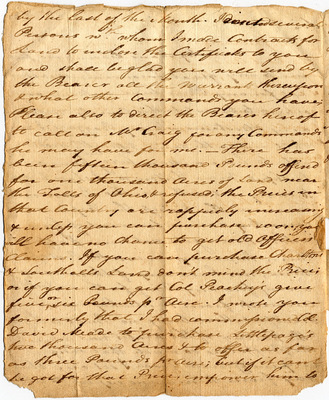 by the last of the Month. I sent several
Persons wt. whom I made Contracts for
Land to inclose the Certificates to you
and shall be glad you will send by
the Bearer all the Warrants hereupon
& what other Commands you have,
Please also to direct the Bearer hereof
to call on Mr. Craig for any Commands
he may have for me. There has
been fifteen thousand Pounds offerd
for one thousand Acres of Land near
the Falls of Ohio & refused, the Prices in
that Country are rappidly increasing
& unless you can purchase soon you
will have no chance to get old Officers
Claims. If you can purchase Charlton
& Southall's Land don't mind the Price
or if you can get Col. Peachy's give
five, or six Pounds pr. Acre. I wrote you
formerly that I had empower'd
David Meade to purchase Littlepage's
two thousand Acres & to offer as far
as three Pounds pr Acre, but if it cant
be got for that Price empower him to